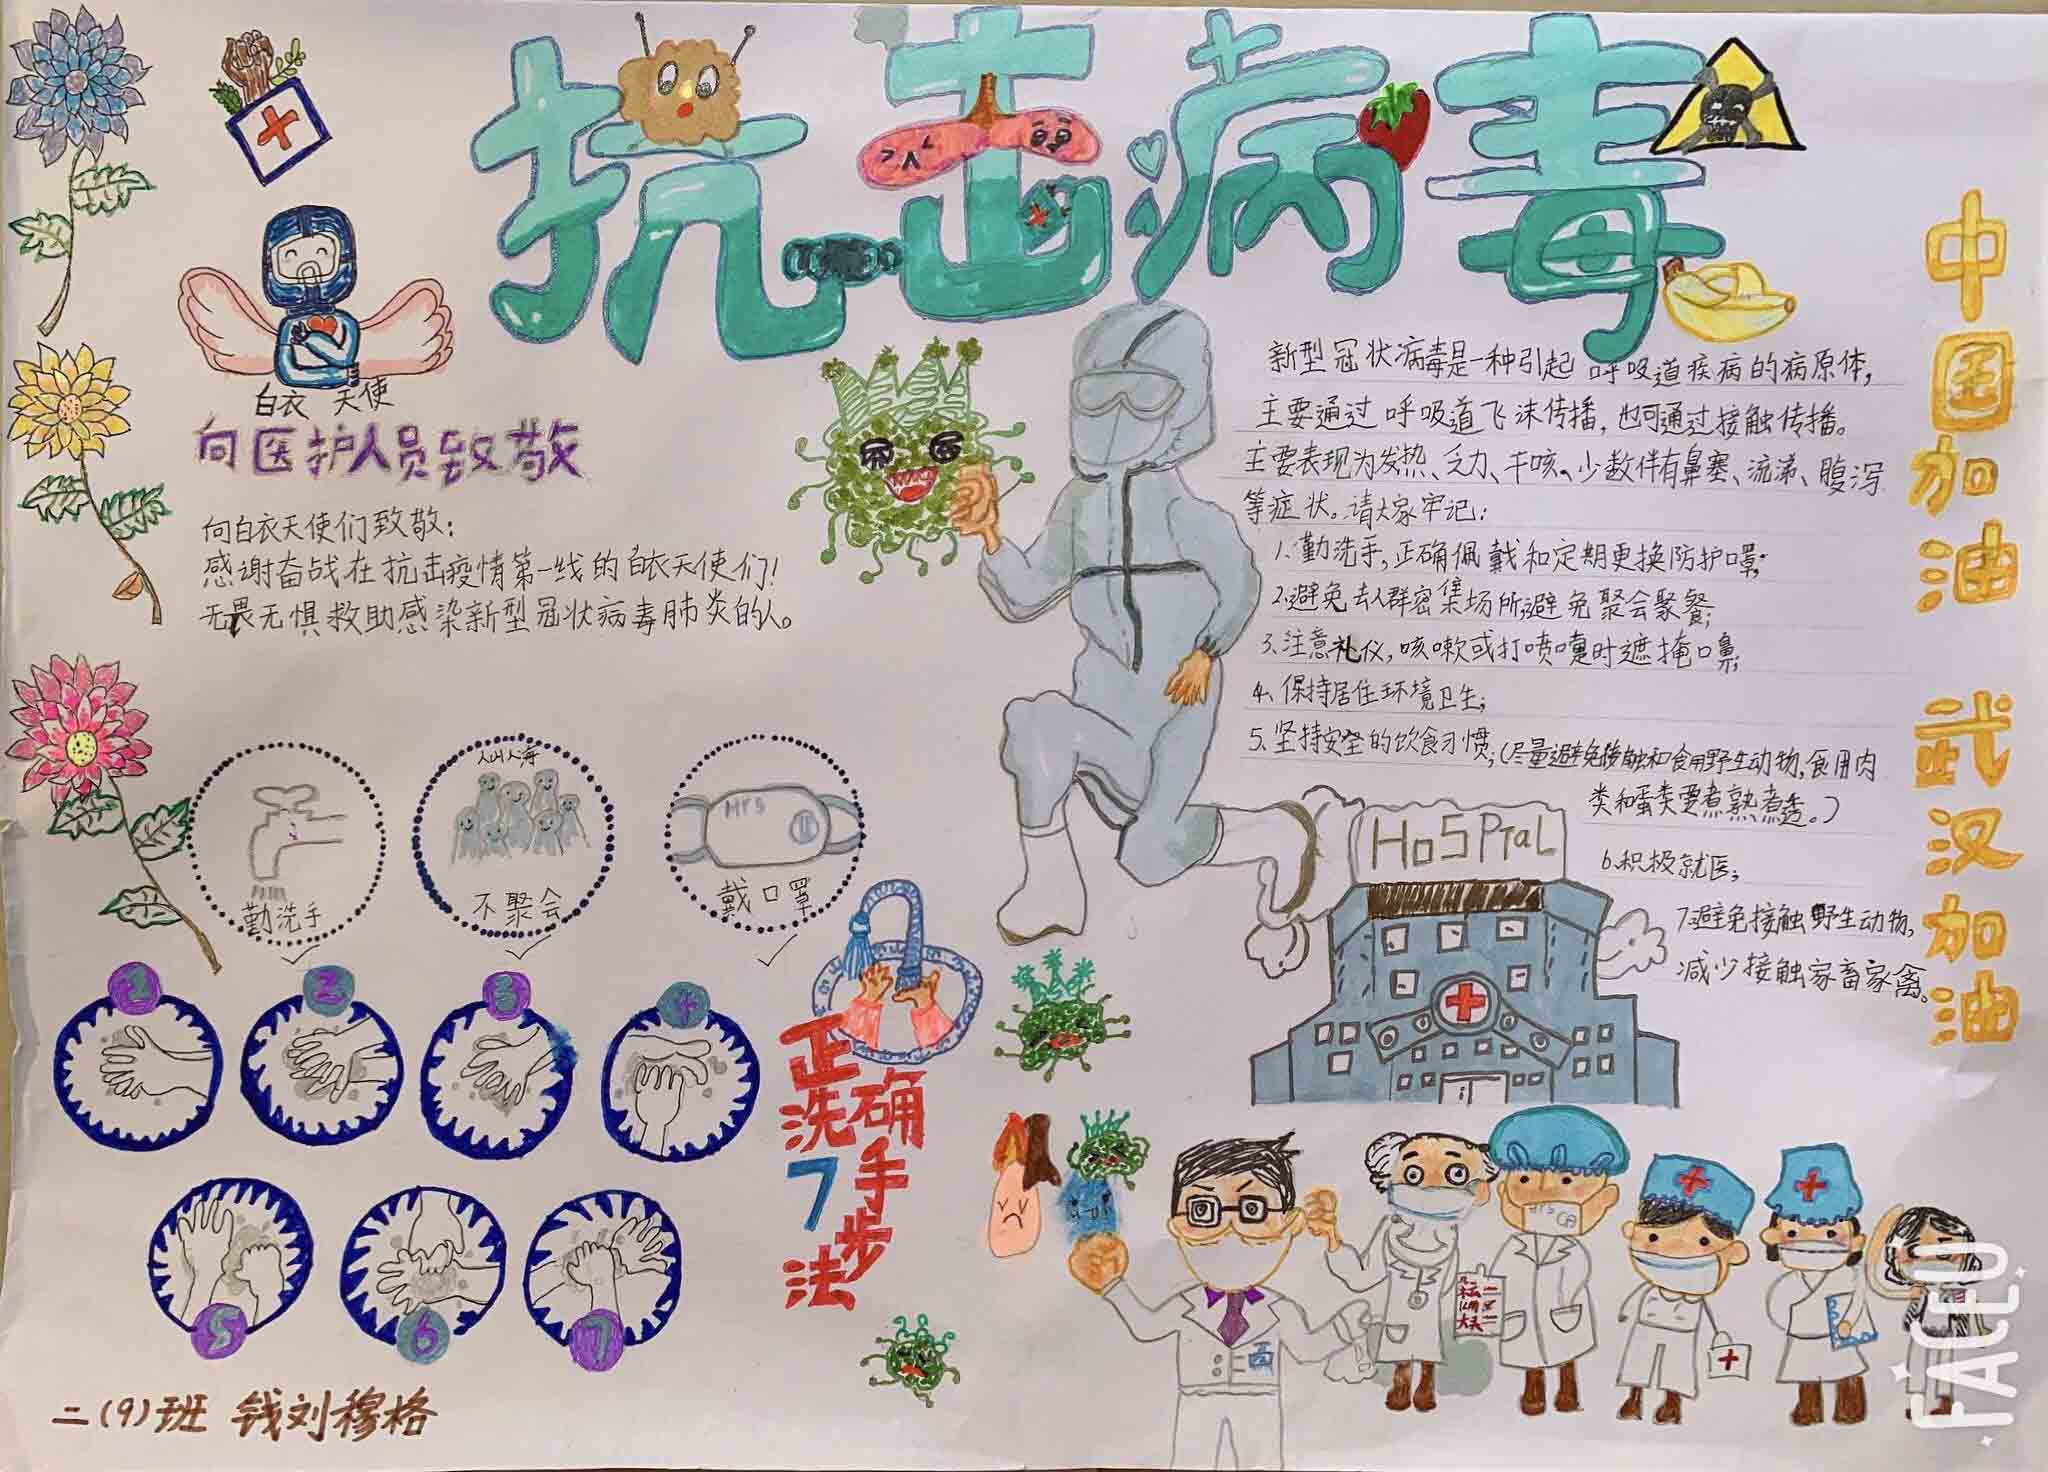 抗击病毒
中国加油 武汉加油
白衣天使
向医护人员致敬
向白衣天使们致敬:
感谢奋战在抗击疫情第一线的白衣天使们!
无畏无惧救助感染新型冠状病毒肺炎的人。
新型冠状病毒是一种引起呼吸道疾病的病原体,
主要通过呼吸道飞沫传播,也可通过接触传播。
主要表现为发热、乏力、干咳。少数伴有鼻塞、流涕、腹泻
等症状。请大家牢记:
1、勤洗手,正确佩戴和定期更换防护口罩;
2、避免去人群密集场所,避免聚会聚餐;
3、注意礼仪,咳嗽或打喷嚏时遮掩口鼻;
4、保持居住环境卫生;
5、坚持安全的饮食习惯;(尽量避免接触和食用野生动物,食用肉
类和蛋类要煮熟煮透。)
6.积极就医;
7.避免接触野生动物,
减少接触家畜家禽。
勤洗手
人山人海
不聚会
Mrs
戴口罩
HoSPTaL
正确
洗手
7步
法
1
2
3
4
5
6
7
二(9)班 钱刘穆格
FACEU